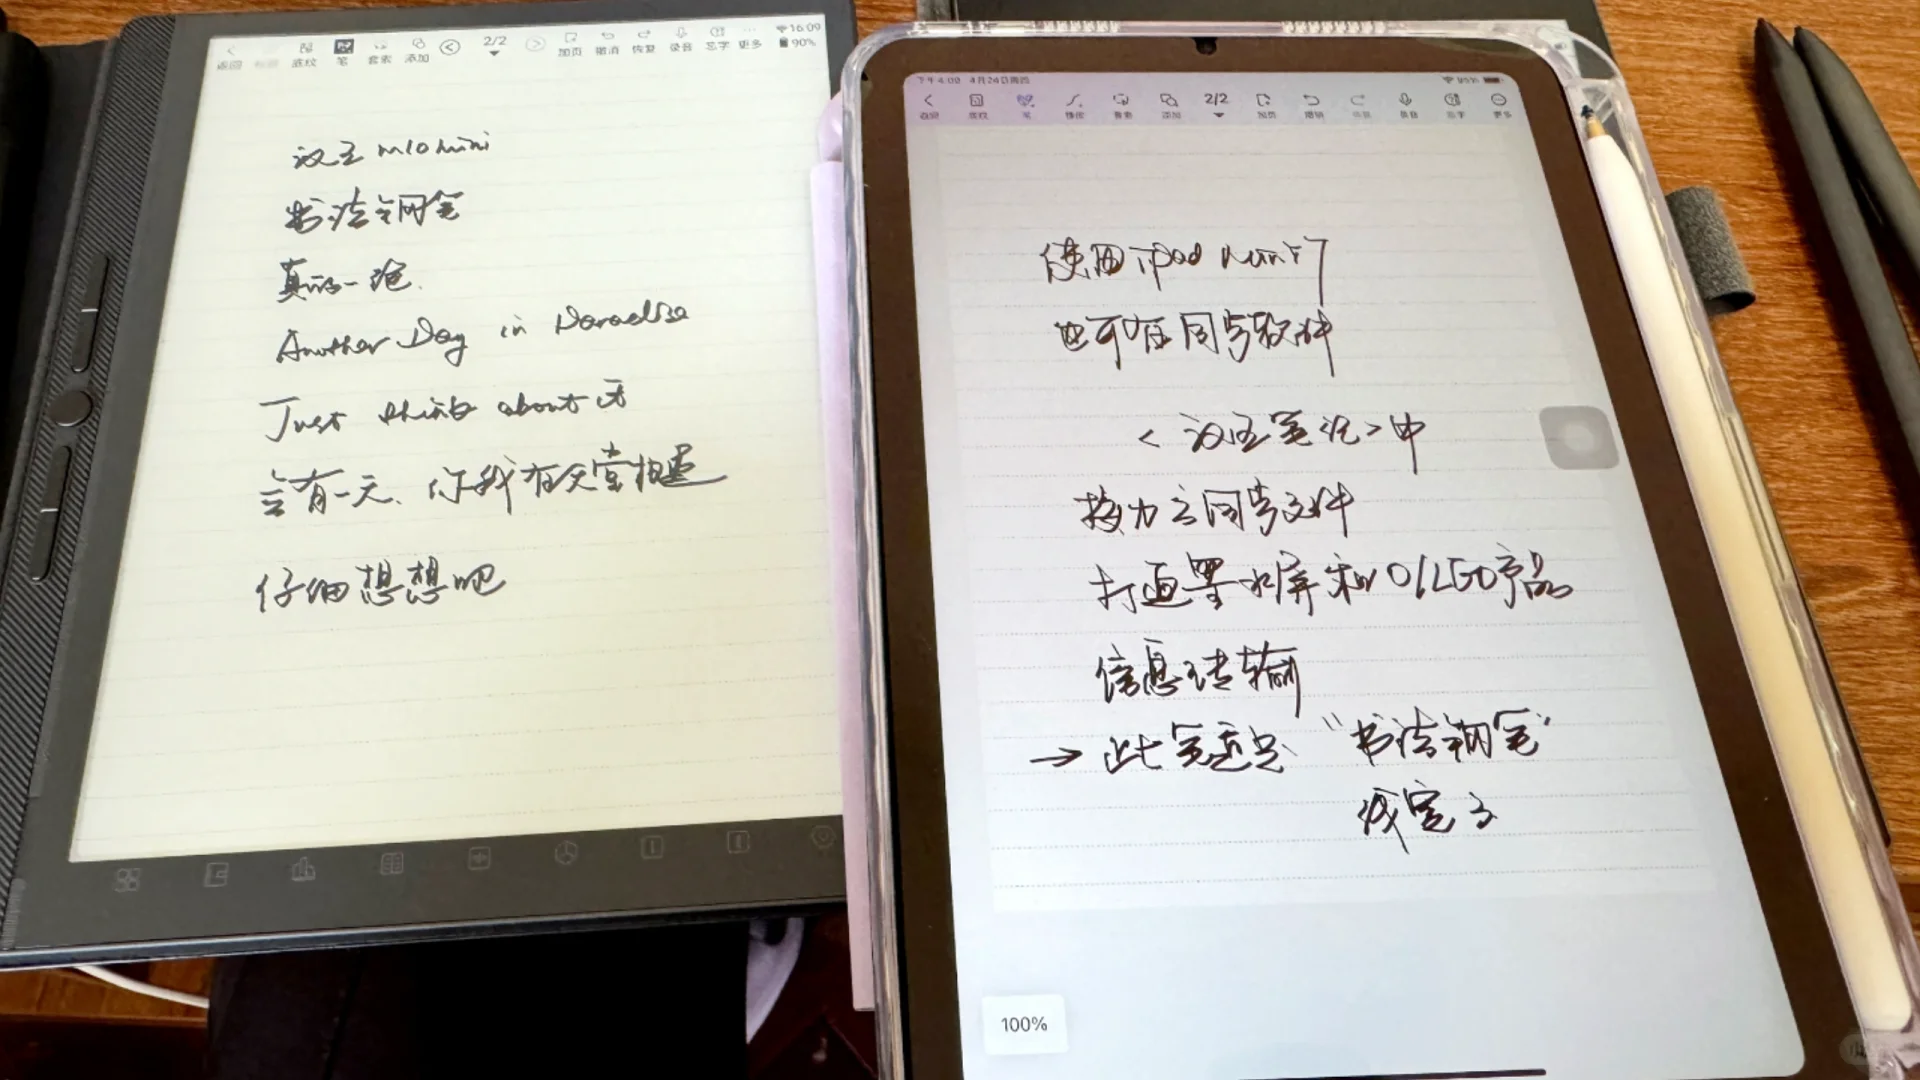 16:09
返回 底纹 笔 套索 添加 2/2 加页 撤消 恢复 录音 忘字 更多 90%
汉王 m10mini
书法钢笔
真的一绝.
Another Day in Paradise
Just think about it
会有一天、你我在天堂相遇
仔细想想吧
下午4:09 4月24日周四 95%
返回 底纹 笔 橡皮 套索 添加 2/2 加页 撤销 恢复 录音 忘字 更多
使用 ipad mini 7
也可在同步软件
<汉王笔记>中
接力之同步文件
打通墨水屏和OLED产品
信息传输
→ 此笔迹是 "书法钢笔"
线定了
100%